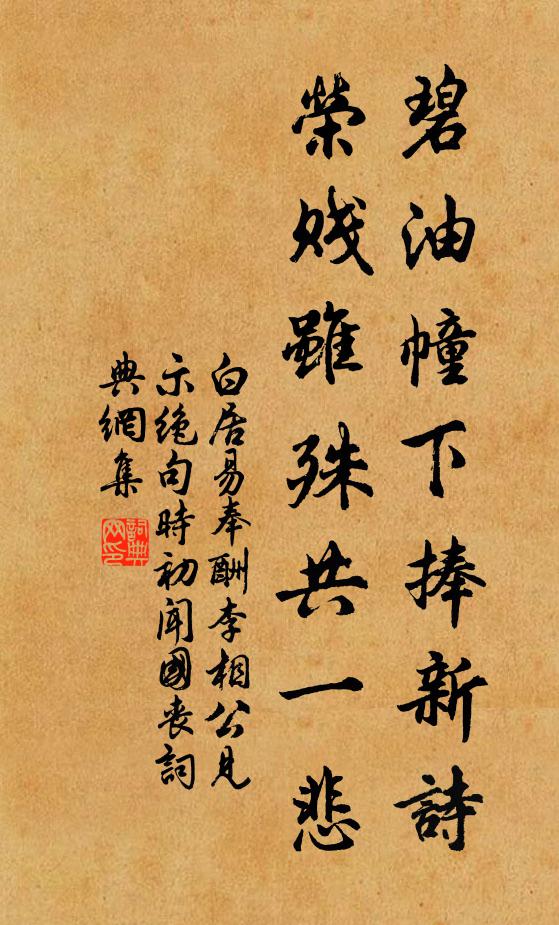 碧油幢下捧新詩
榮賤雖殊共一悲
白居易奉酬李相公見
示绝句時初闻國丧詞
典網集
詞典网印